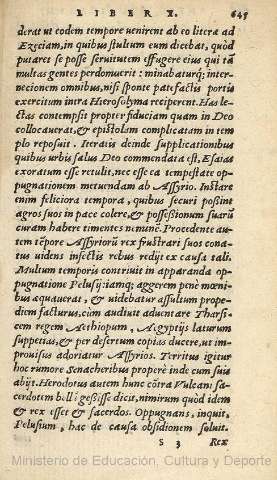 LIBER X. 645
derat ut eodem tempore venirent ab eo literæ ad
Ezeciam, in quibus stultum eum dicebat, quòd
putaret se posse servitutem effugere eius qui tā
multas gentes perdomuerit: minabaturq; inter-
necionem omnibus, nisi sponte patefactis portis
exercitum intra Hierosolyma reciperent. Has le-
ctas contempsit propter fiduciam quam in Deo
collocauerat, & epistolam complicatam in tem
plo reposuit. Iteratis deinde supplicationibus
quibus urbis salus Deo commendata est, Esaias
exoratum esse retulit, nec esse ea tempestate op-
pugnationem metuendam ab Assyrio. Instare
enim feliciora tempora, quibus securi possint
agros suos in pace colere, & possessionum suarū
curam habere timentes nemine. Procedente au-
tem tēpore Assyriorū rex frustrari suos cona-
tus videns infectis rebus redijt ex causa tali.
Multum temporis contriuit in apparanda op-
pugnatione Pelusij: iamq; aggerem penè mœni-
bus æquauerat, & videbatur assultum prope-
diem facturus, cùm audiuit aduentare Tharsi-
cem regem Aethiopum, Aegyptijs laturum
suppetias, & per desertum copias ducere, ut im-
prouisus adoriatur Assyrios. Territus igitur
hoc rumore Senacheribus properè inde cum suis
abijt. Herodotus autem hunc cōtra Vulcani sa-
cerdotem bellū gessisse dicit, nimirum quòd idem
& rex esset & sacerdos. Oppugnans, inquit,
Pelusium, hac de causa obsidionem soluit.
S 3 Rex
Ministerio de Educación, Cultura y Deporte